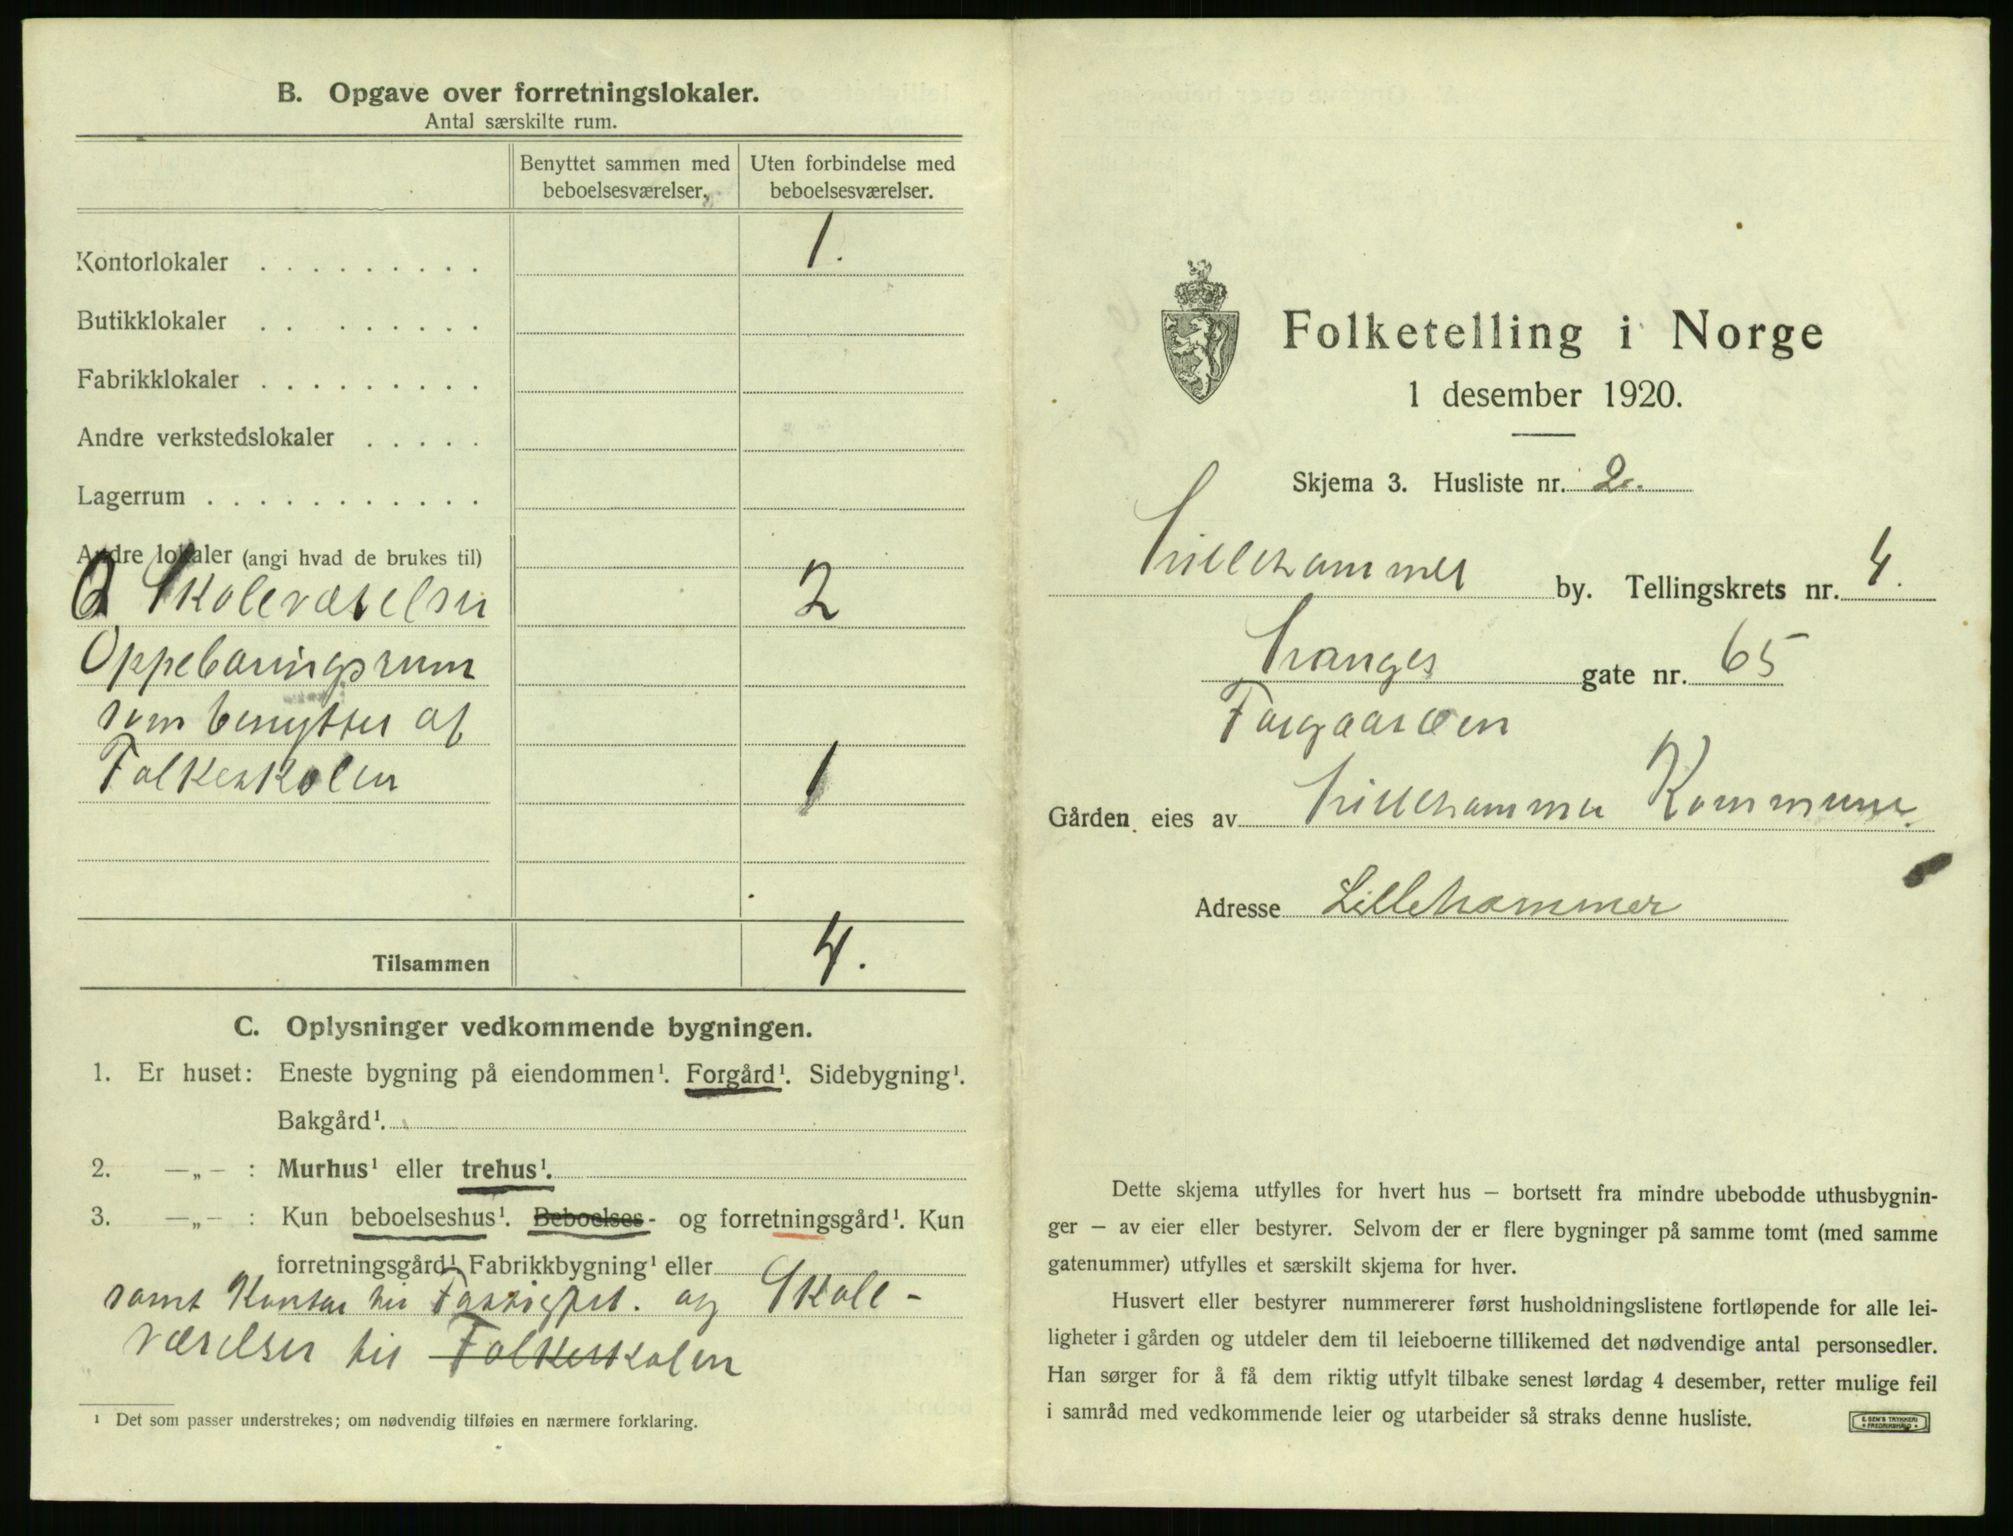 B. Opgave over forretningslokaler.
Antal særskilte rum.
Benyttet sammen med beboelsesværelser.
Uten forbindelse med beboelsesværelser.
Kontorlokaler . . . . . . . . . 1.
Butikklokaler . . . . . . . . .
Fabrikklokaler . . . . . . . . .
Andre verkstedslokaler . . . . .
Lagerrum . . . . . . . . . . . .
Andre lokaler (angi hvad de brukes til)
2 Skoleværelser 2
Oppebaringsrum
som benyttes af
Folkeskolen 1
Tilsammen 4.
C. Oplysninger vedkommende bygningen.
1. Er huset: Eneste bygning på eiendommen¹. Forgård¹. Sidebygning¹.
Bakgård¹.
2. —„— : Murhus¹ eller trehus¹.
3. —„— : Kun beboelseshus¹. Beboelses- og forretningsgård¹. Kun
forretningsgård¹. Fabrikkbygning¹ eller
samt Kontor til og Skole-
værelser til Folkeskolen
¹ Det som passer understrekes; om nødvendig tilføies en nærmere forklaring.
Folketelling i Norge
1 desember 1920.
Skjema 3. Husliste nr. 2.
Lillehammer by. Tellingskrets nr. 4.
Langes gate nr. 65
Forgaarden
Gården eies av Lillehammer Kommune.
Adresse Lillehammer
Dette skjema utfylles for hvert hus – bortsett fra mindre ubebodde uthusbygnin-
ger – av eier eller bestyrer. Selvom der er flere bygninger på samme tomt (med samme
gatenummer) utfylles et særskilt skjema for hver.
Husvert eller bestyrer nummererer først husholdningslistene fortløpende for alle lei-
ligheter i gården og utdeler dem til leieboerne tillikemed det nødvendige antal personsedler.
Han sørger for å få dem riktig utfylt tilbake senest lørdag 4 desember, retter mulige feil
i samråd med vedkommende leier og utarbeider så straks denne husliste.
E. SEM'S TRYKKERI
FREDRIKSHALD